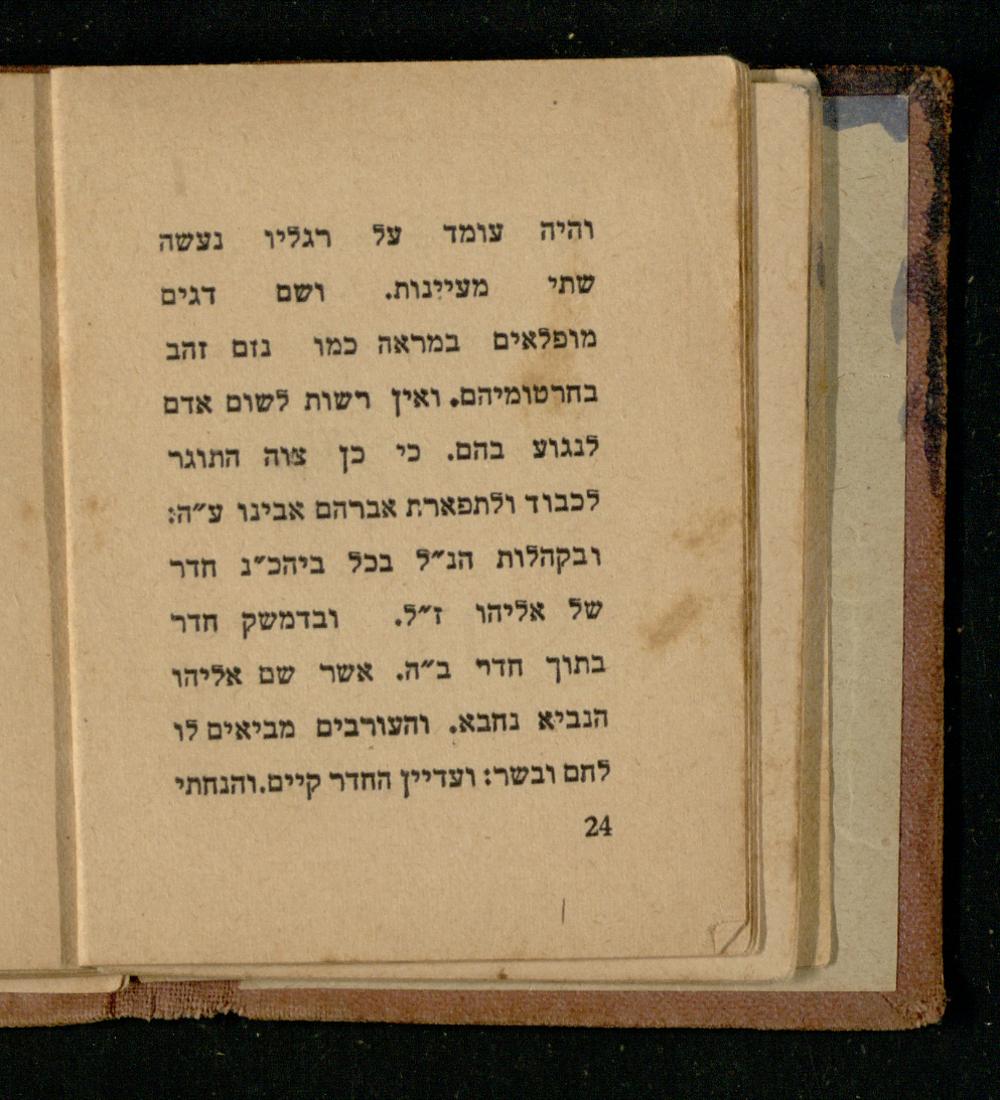 והיה עומד על רגליו נעשה
שתי מעיינות. ושם דגים
מופלאים במראה כמו נזם זהב
בחרטומיהם. ואין רשות לשום אדם
לנגוע בהם. כי כן צוה התוגר
לכבוד ולתפארת אברהם אבינו ע״ה:
ובקהלות הנ״ל בכל ביהכ״נ חדר
של אליהו ז״ל. ובדמשק חדר
בתוך חדרי ב״ה. אשר שם אליהו
הנביא נחבא. והעורבים מביאים לו
לחם ובשר: ועדיין החדר קיים. והנחתי
24